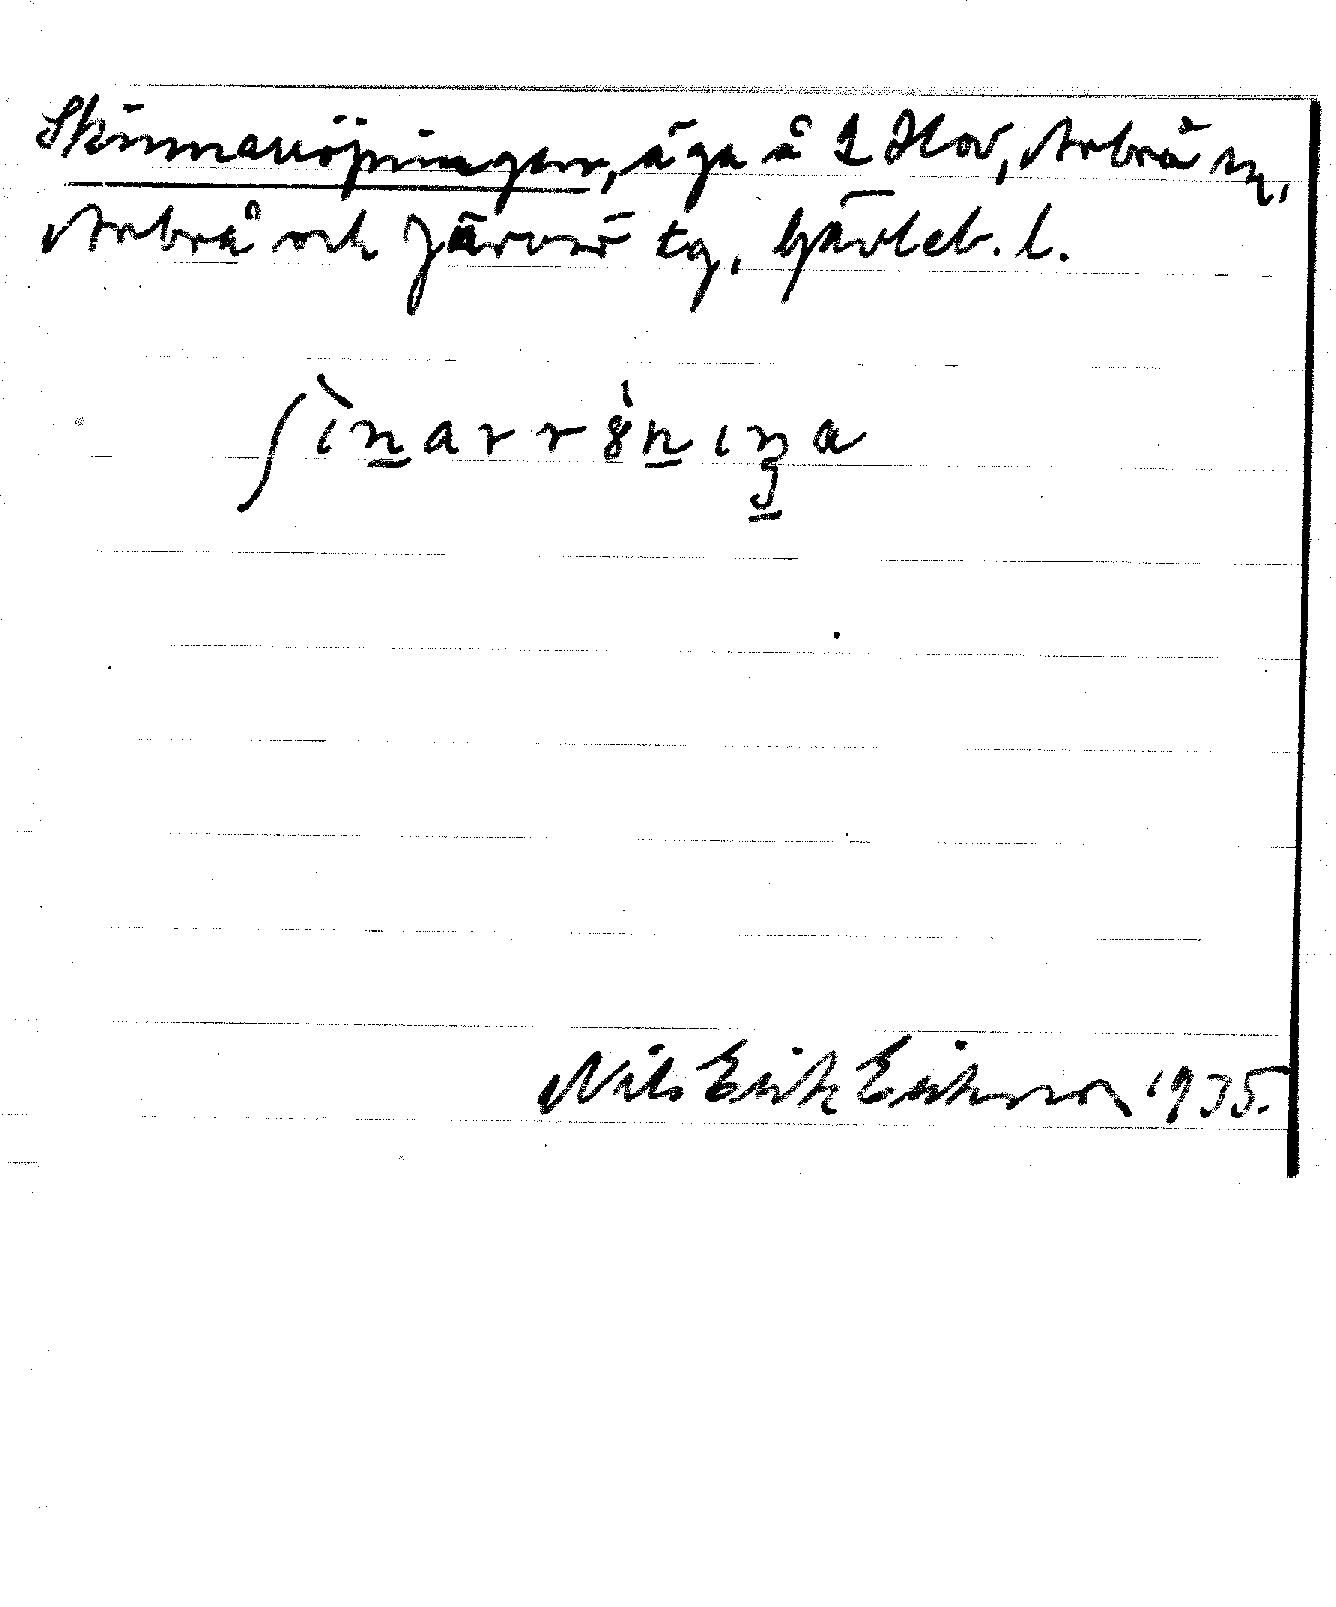 Skinnarröjningen, äga å 2 Hov, Arbrå sn,
Arbrå och Järvsö tg, Gävleb. l.
ʃìn̲arr8̀n̲ıŋ̲a
Nils Erik Eriksson 1935.